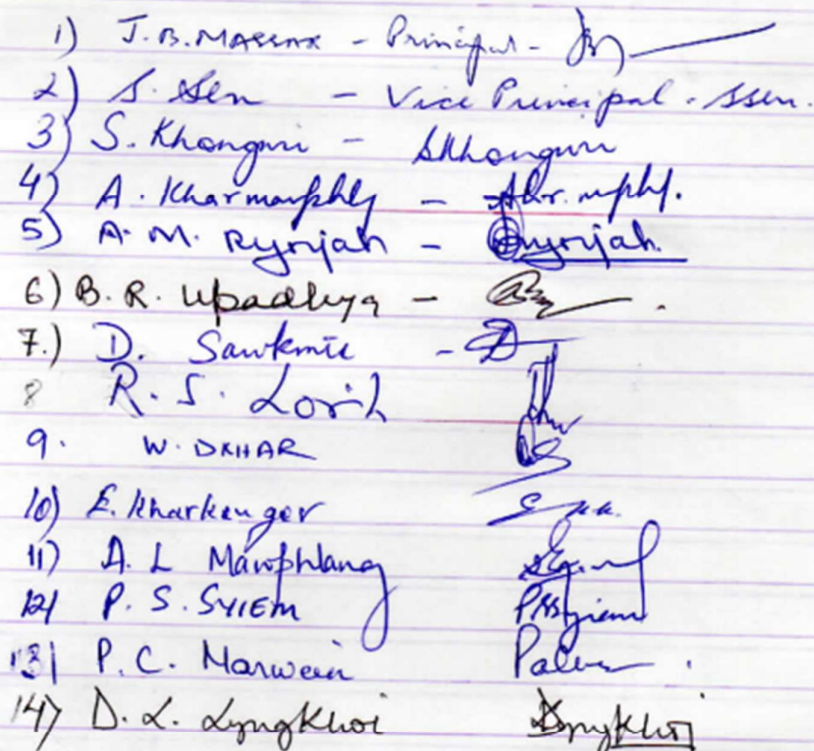 1) J.B. MASSAR - Principal -
2) S. Sen - Vice Principal - SSen.
3) S. Khongwri - SKhongwri
4) A. Kharmawphlg -
5) A. M. Rynjah - Rynjah
6) B. R. Upadhya -
7.) D. Sawkmie -
8 R. S.
9. W. DKHAR
10) E. Kharkongor
11) A. L Mawphlang
12) P. S. SYIEM PSSyiem
13) P. C. Marwein
14) D. L. Lyngkhoi Lyngkhoi